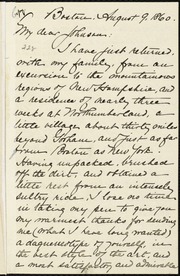 Boston, August 9, 1860.
My dear Johnson:
I have just returned,
with my family, from an
excursion to the mountainous
regions of New Hampshire, and
a residence of nearly three
weeks at Northumberland, a
little village about thirty miles
beyond Gorham, and just as far
from Boston as New York.
Having unpacked, brushed
off the dirt, and obtained a
little rest from an intensely
sultry ride, I lose no time
in taking my pen to give you
my warmest thanks for sending
me (what I have long wanted)
a daguerreotype of yourself, in
the best style of the art, and
a most satisfactory and admirable